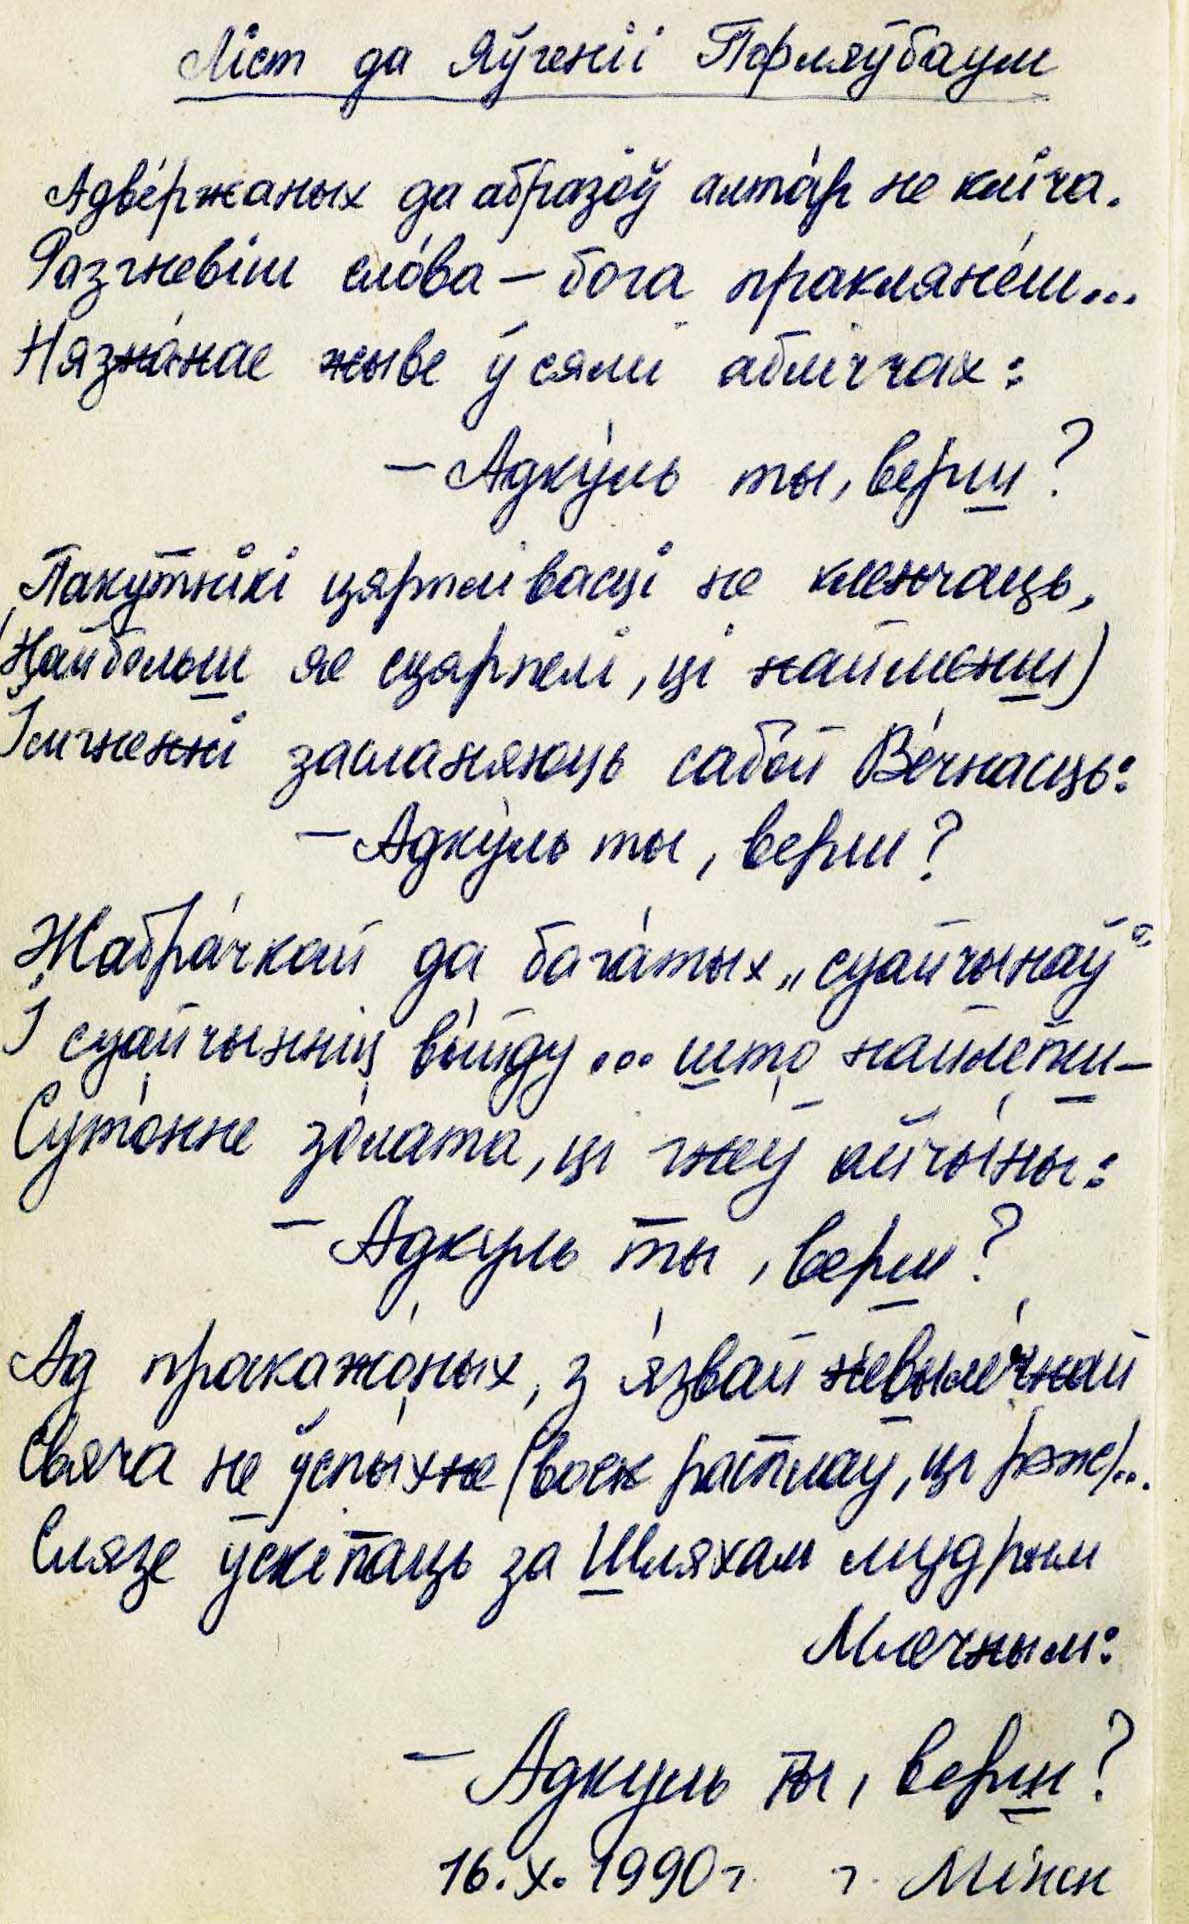 Ліст да Яўгеніі Пфляўбаум
Адве́ржаных да абразо́ў алта́р не клі́ча.
Разгневіш сло́ва – бога праклянéш...
Нязна́нае жыве ў сямі аблі́ччах:
– Адку́ль ты, верш?
Паку́тнікі цярплівасці не кленчаць,
(Найбольш яе сцярпелі, ці найменш)
Імгненні засланяюць сабо́й Ве́чнасць:
– Адку́ль ты, верш?
Жабра́чкай да бага́тых „суайчынаў“
І суайчынніц вы́йду... што найлепш –
Суто́нне зо́лата, ці гнеў айчы́ны:
– Адкуль ты, верш?
Ад пракажо́ных, з я́звай невыле́чнай
Свяча не ўспы́хне (воск растаў, ці рэж)...
Слязе ўскіпаць за Шляхам мудрым
Млечным:
– Адкуль ты, верш?
16.X.1990г. г. Мінск